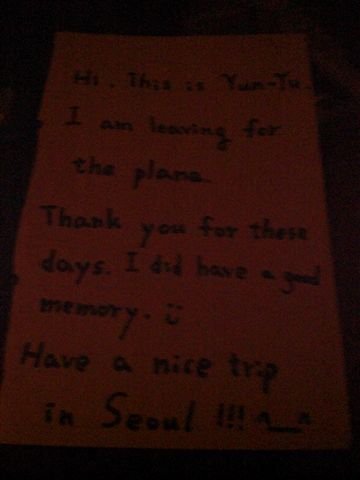 Hi. This is Yun-Yu.
I am leaving for
the plane.
Thank you for these
days. I did have a good
memory. :)
Have a nice trip
in Seoul !!! ^__^